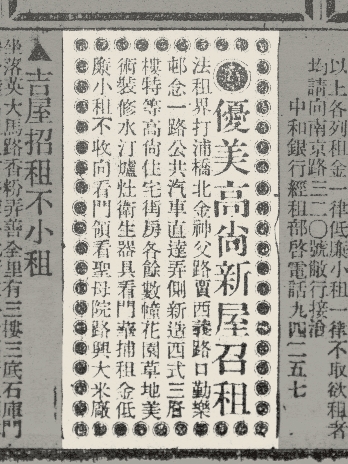 以上各列租金一律低廉小租一律不取欲租者
均請向南京路三二〇號敝行接洽
中和銀行經租部啓電話九四二五七
優美高尚新屋召租
法租界打浦橋北金神父路賈西義路口勤樂
邨念一路公共汽車直達弄側新造西式三層
樓特等高尚住宅街房各餘數幢花園草地美
術裝修水汀爐灶衛生器具看門華捕租金低
廉小租不收向看門領看聖母院路興大米廠
▲吉屋招租不小租
坐落英大馬路香粉弄善全里有三樓三底石庫門